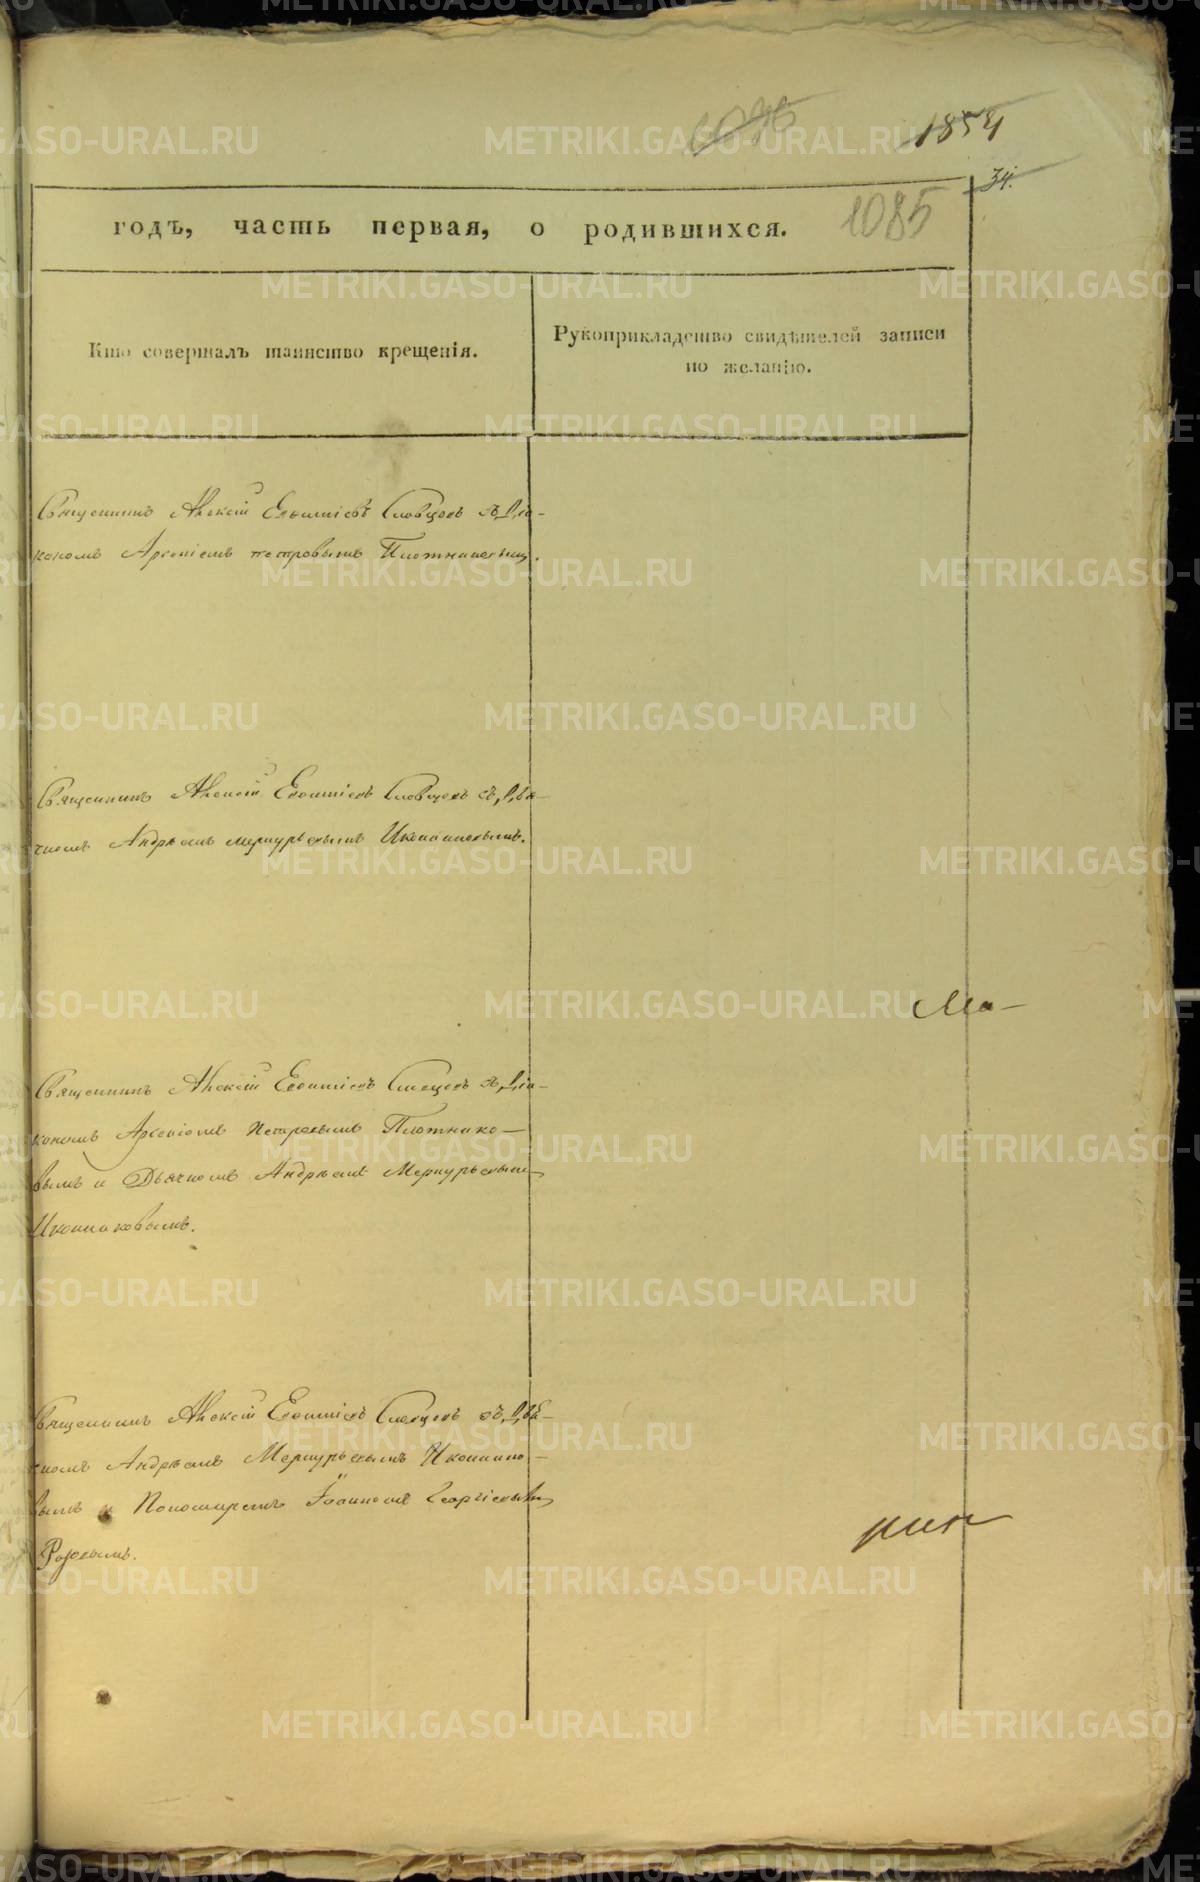 1085
34.
годъ, часть первая, о родившихся.
Кто совершалъ таинство крещенія.
Рукоприкладство свидѣтелей записи
по желанію.
Священникъ Алексій Словцовъ съ Діа-
кономъ Арсеніемъ Петровымъ Плотниковым.
Священникъ Алексій Словцовъ съ Дья-
чкомъ Андреемъ Меркурьевымъ Иконниковымъ.
Ма-
Священникъ Алексій Словцовъ съ Діа-
кономъ Арсеніемъ Петровымъ Плотнико-
вымъ и Дьячкомъ Андреемъ Меркурьевым
Иконниковымъ.
Священникъ Алексій Словцовъ съ Дья-
чкомъ Андреемъ Меркурьевымъ Иконнико-
вымъ и Пономаремъ Іоанномъ Георгіевым
METRIKI.GASO-URAL.RU